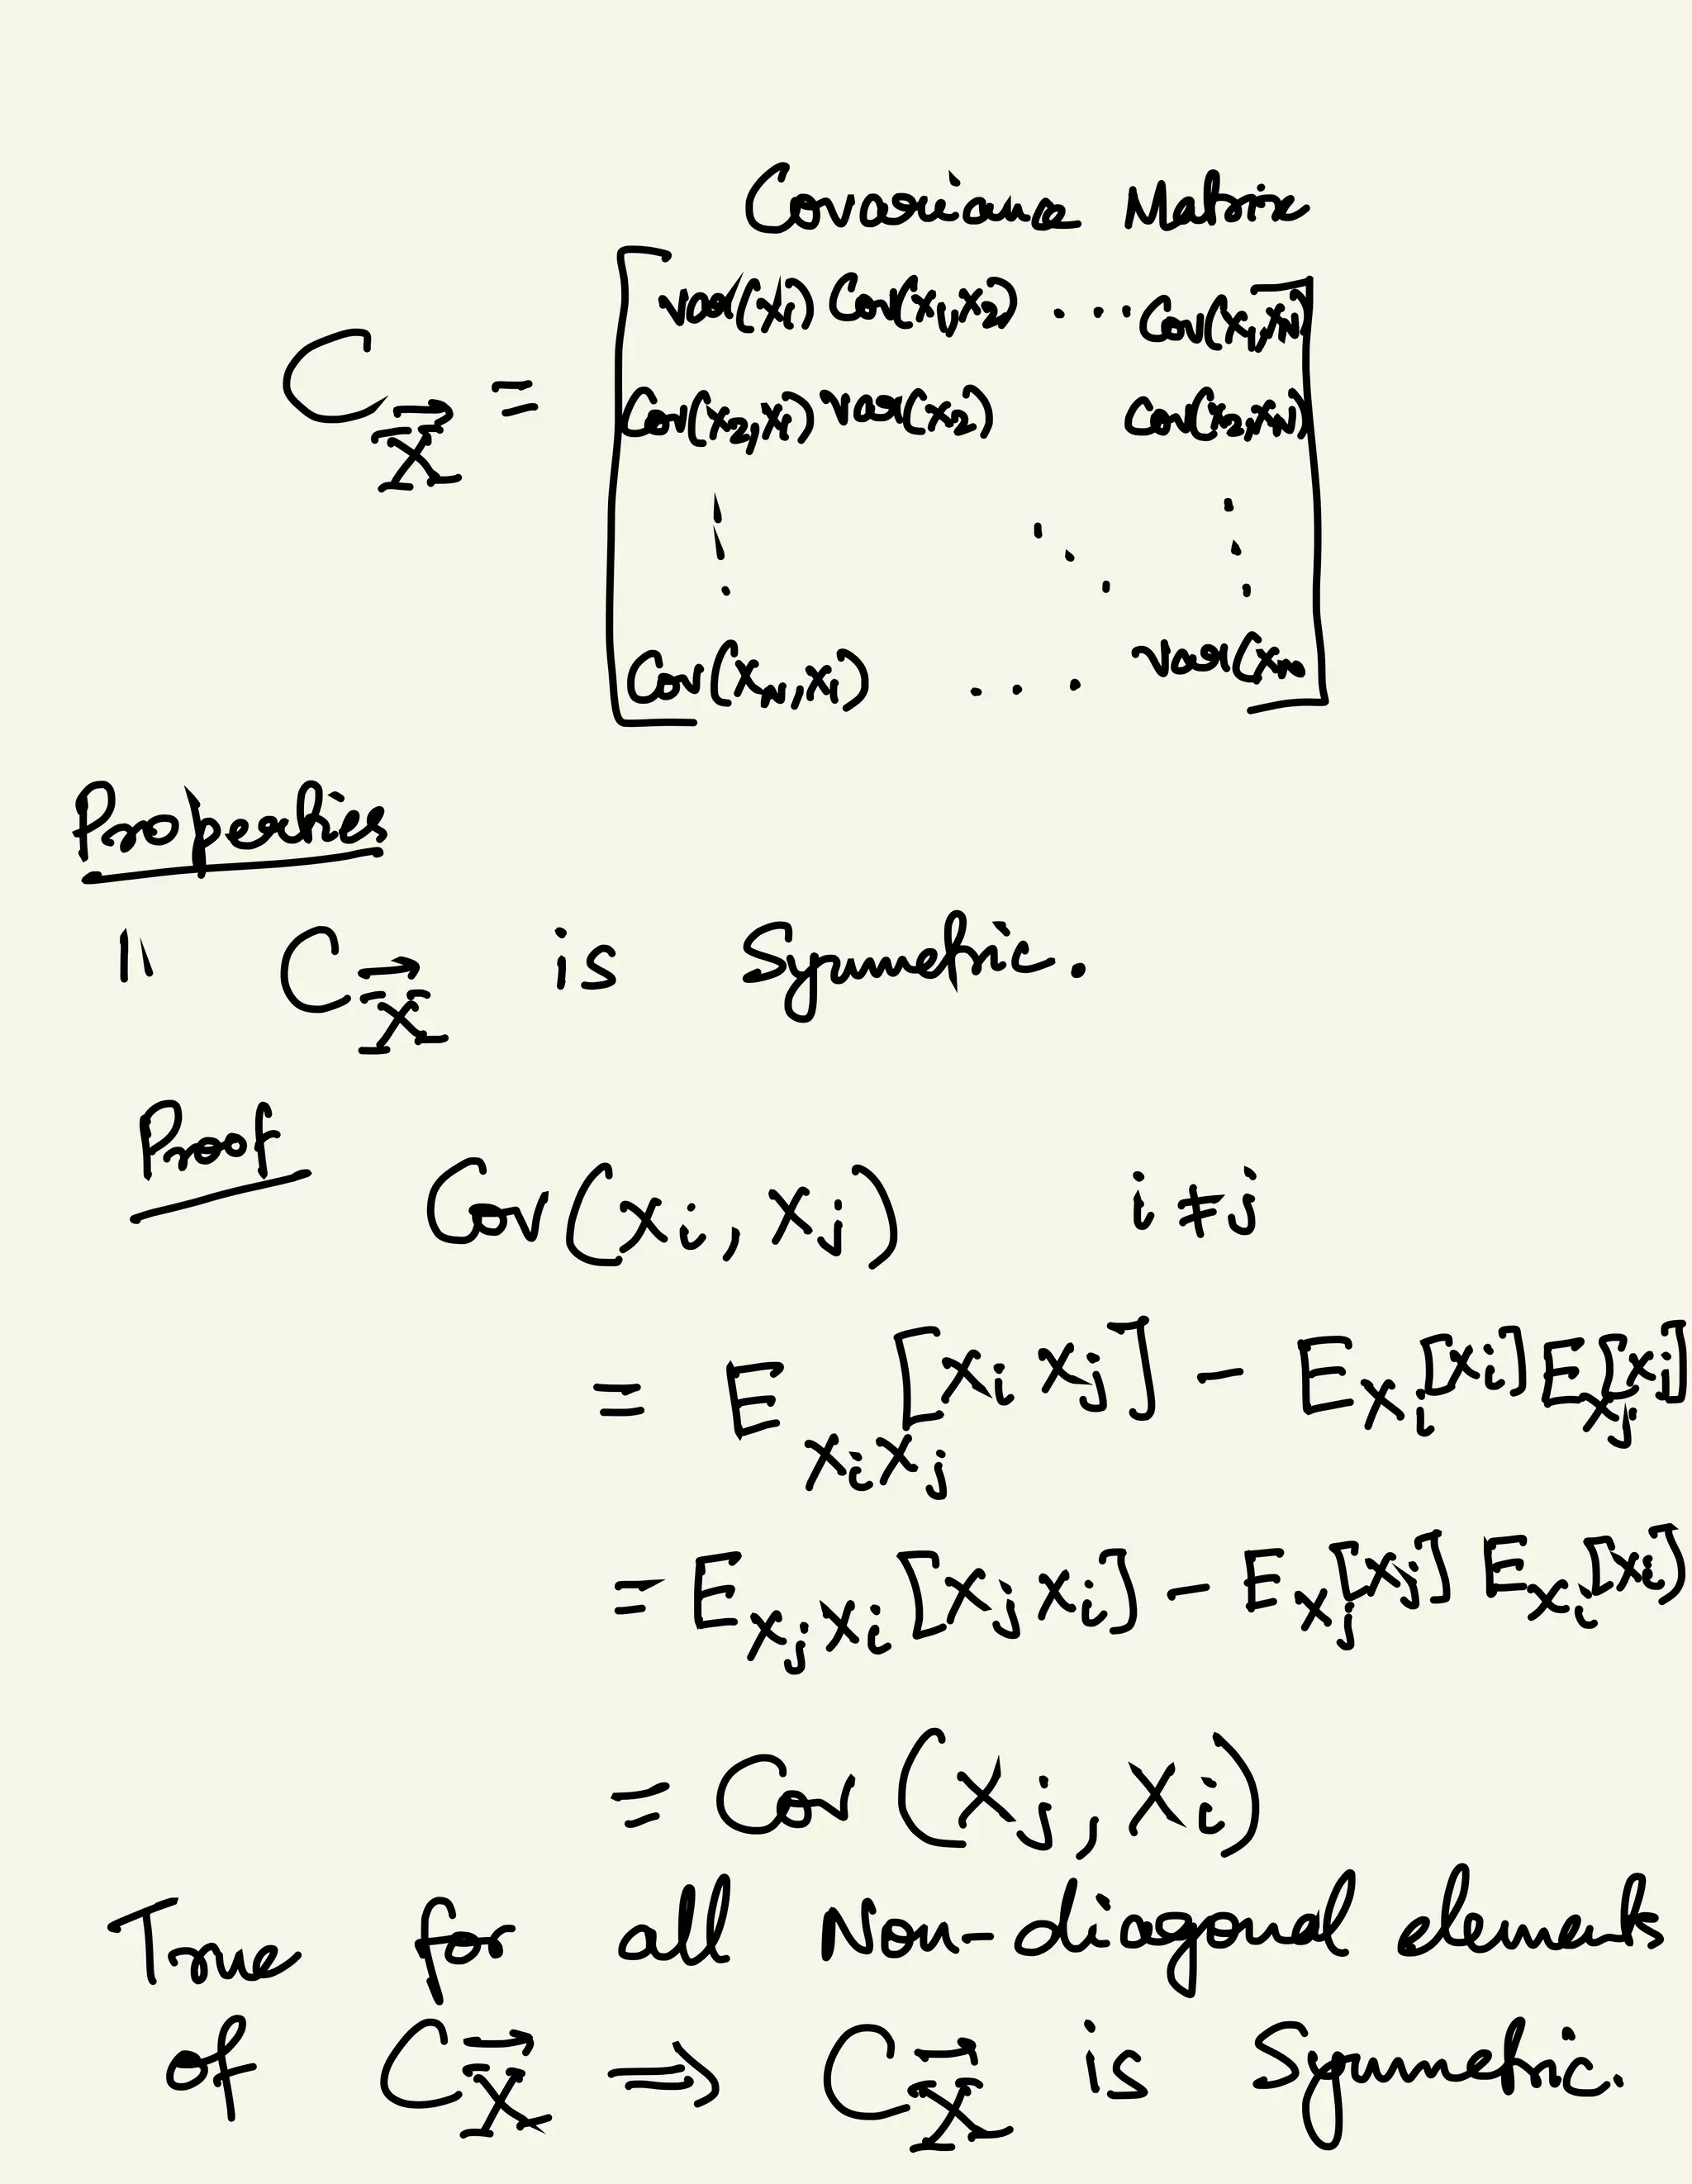 Covariance Matrix
C_X⃗ = [ var(X₁) Cov(X₁,X₂) ... Cov(X₁,X_N)
Cov(X₂,X₁) var(X₂) Cov(X₂,X_N)
⋮ ⋱ ⋮
Cov(X_N,X₁) ... var(X_N ]
Properties
1\ C_X⃗ is Symmetric.
Proof
Cov(X_i, X_j) i ≠ j
= E_{X_i X_j} [X_i X_j] − E_{X_i}[X_i] E_{X_j}[X_j]
= E_{X_j X_i} [X_j X_i] − E_{X_j}[X_j] E_{X_i}[X_i]
= Cov (X_j, X_i)
True for all Non-diagonal elements
of C_X⃗ ⇒ C_X⃗ is Symmetric.